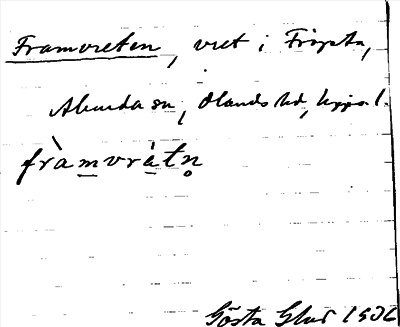 Framvreten, vret i Fröpsta,
Alunda sn, Olands hd, Upps. l.
fràmvrètn̥
Gösta Glad 1932